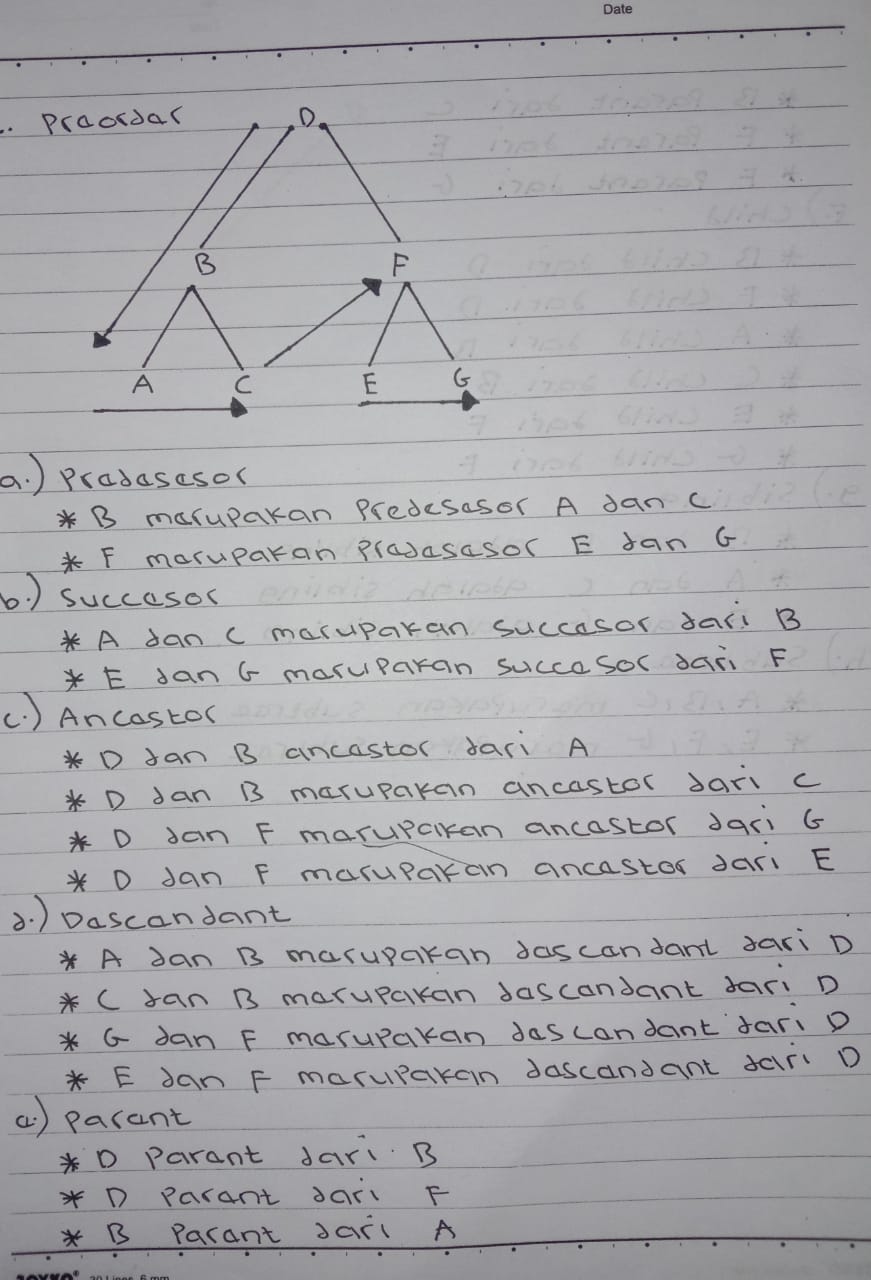 Date
Preorder
D
B F
A C E G
a.) Predesesor
* B merupakan Predesesor A dan C
* F merupakan Predesesor E dan G
b.) Succesor
* A dan C merupakan succesor dari B
* E dan G merupakan succesor dari F
c.) Ancestor
* D dan B ancestor dari A
* D dan B merupakan ancestor dari C
* D dan F merupakan ancestor dari G
* D dan F merupakan ancestor dari E
d.) Descendant
* A dan B merupakan descendant dari D
* C dan B merupakan descendant dari D
* G dan F merupakan descendant dari D
* E dan F merupakan descendant dari D
e.) Parent
* D Parent dari B
* D Parent dari F
* B Parent dari A
Lines, 6 mm